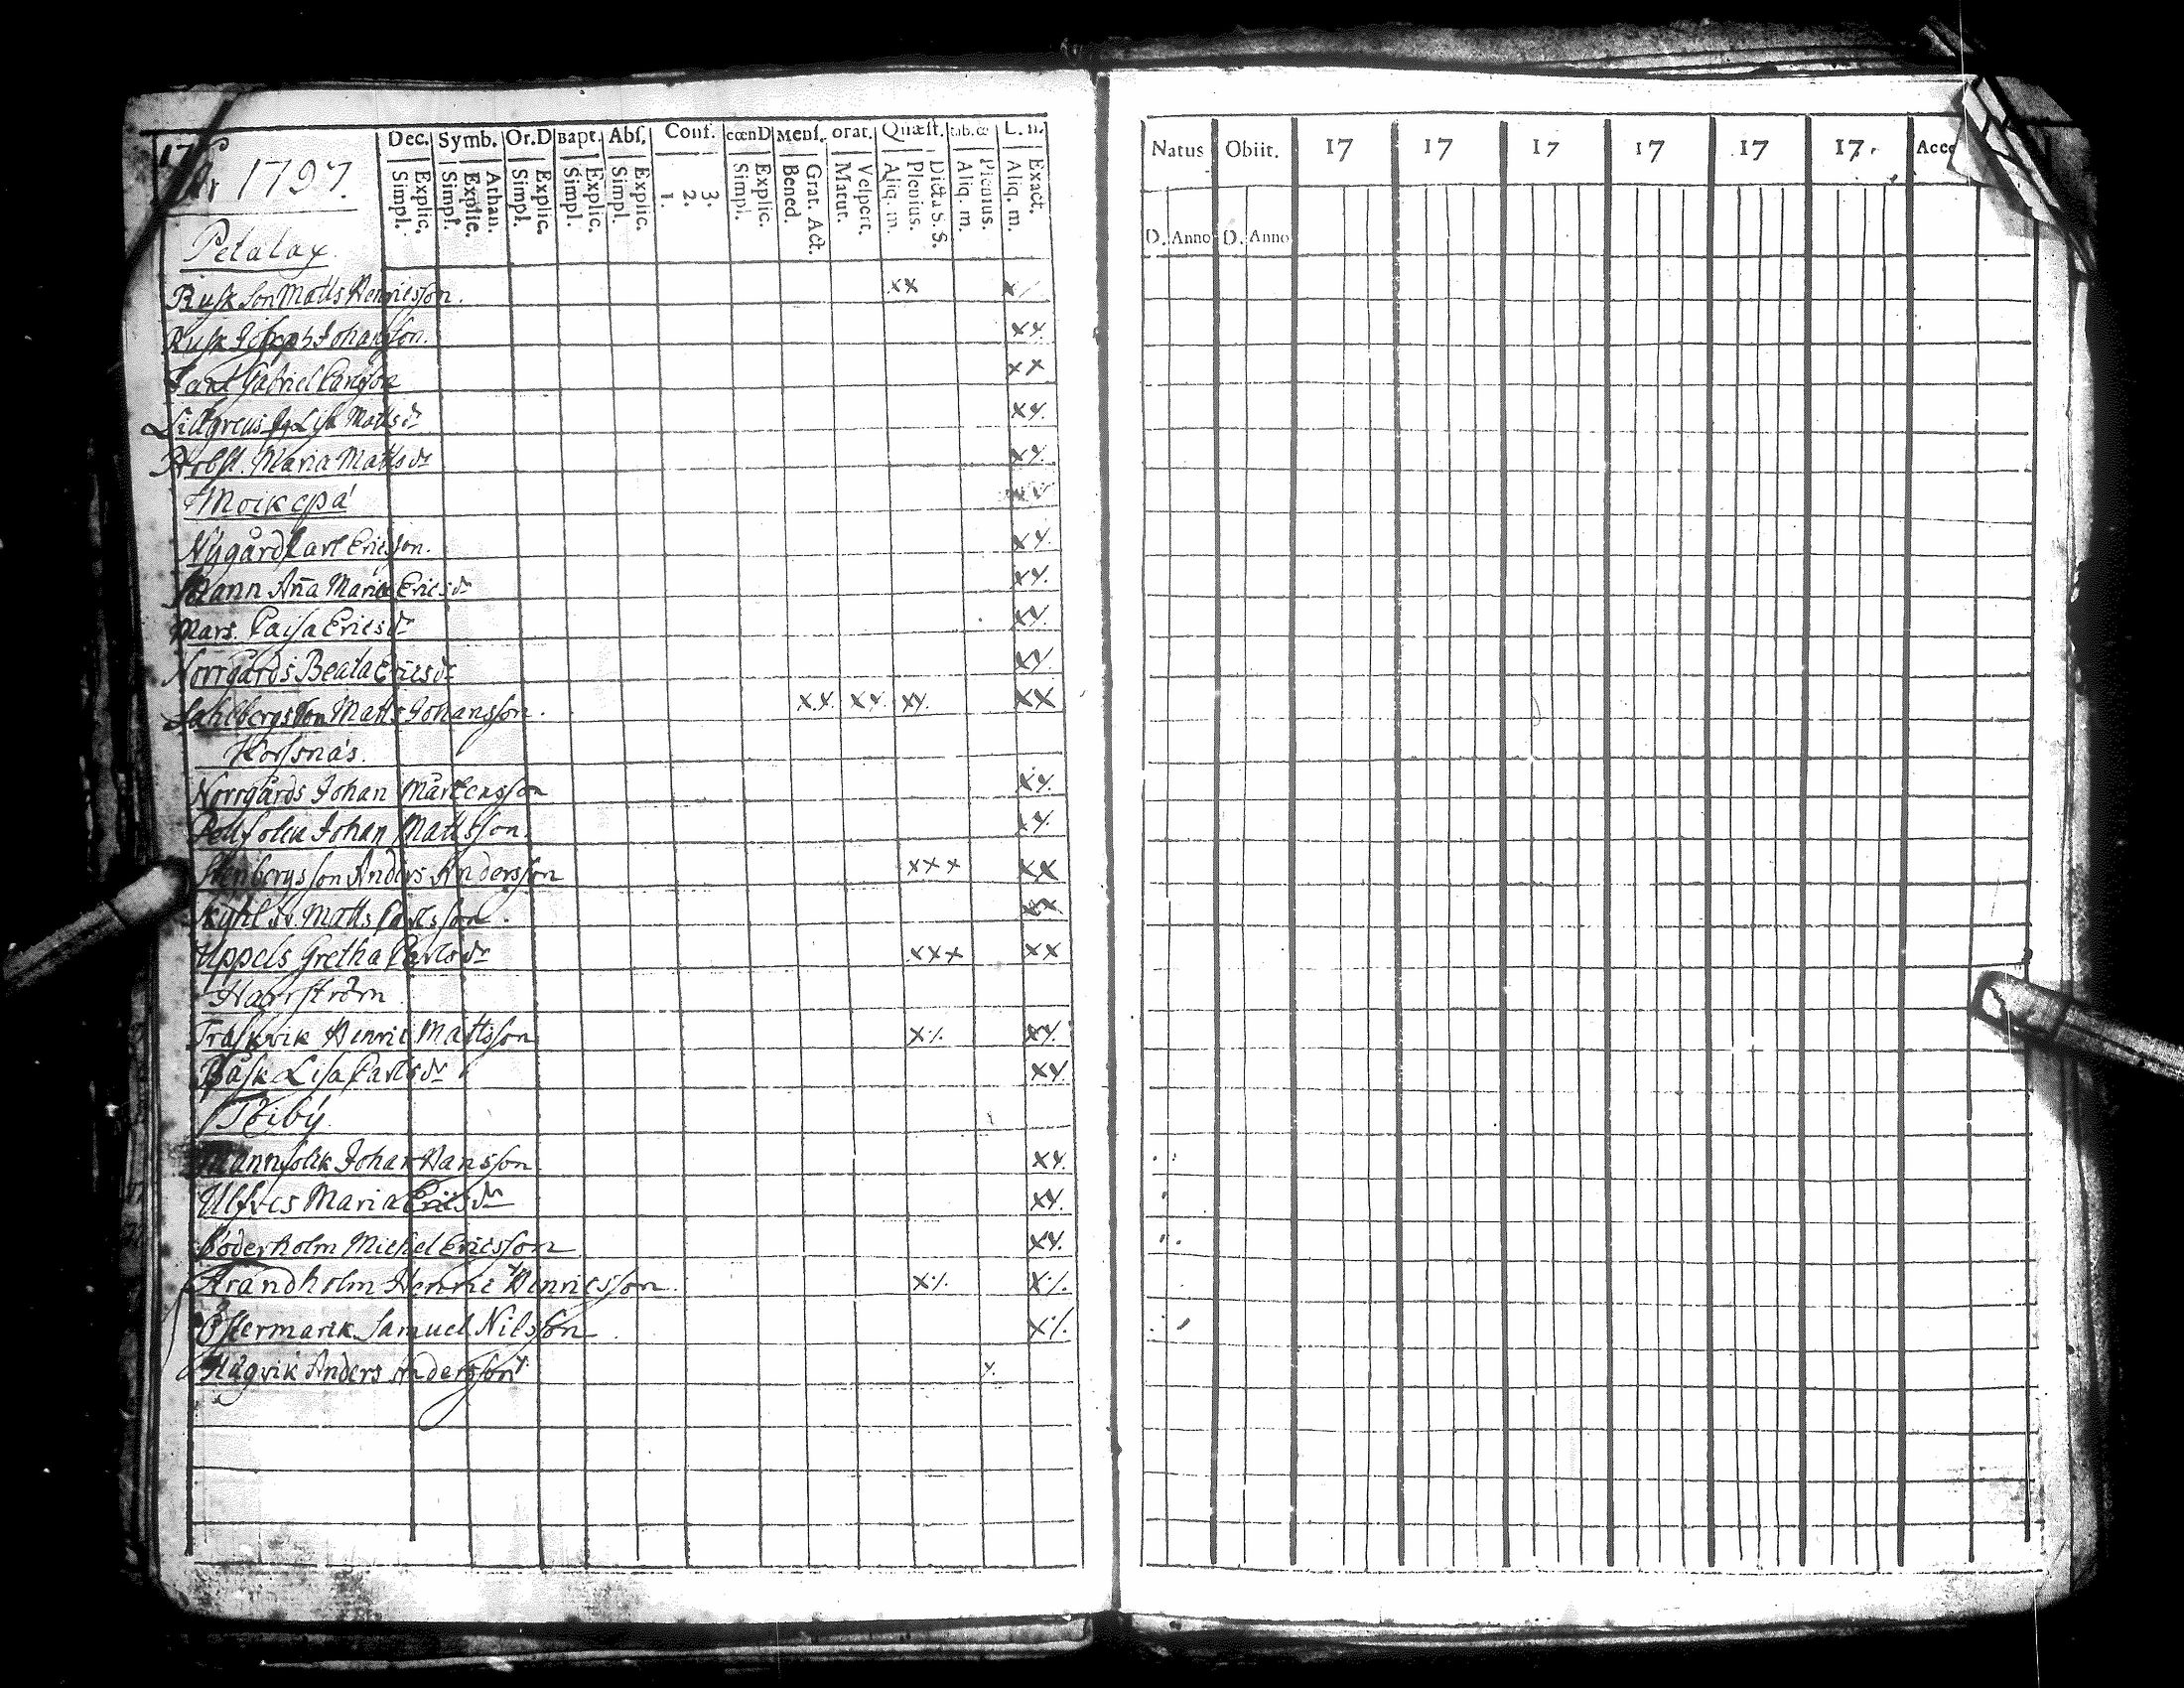 Dec. Symb. Or.D Bapt. Abs. Conf. cœnD Mens. orat. Quæst. tab. œ L. n.
Simpl. Explic. Simpl. Explic. Athan. Simpl. Explic. Simpl. Explic. Simpl. Explic. 1. 2. 3. Simpl. Explic. Bened. Grat. Act. Matut. Vespert. Aliq. m. Plenius. Dicta S. S. Aliq. m. Plenius. Aliq. m. Exact.
17
År 1797.
Petalax
Rusk Son Matts Henricsson. xx x/
Rusk Joseph Johansson. xx.
Gabriel xx
Lillgreus Lisa Mattsdr xx.
Maria Mattsdr xx.
Moikepä xx
Nygård Carl Ericsson. xx.
Anna Maria Ericsdr xx.
Mars Cajsa Ericsdr xx.
Norrgårds Beata Ericsdr xx.
Sahlbergs Son Matts Johansson. xx. xx. xx. xx
Korsnäs.
Norrgårds Johan Mårtensson xx.
Johan Mattsson. xx.
Stenbergs son Anders Andersson xxx xx
Matts Carlsson. xx
Uppels Gretha Carlsdr xxx xx
Harrström
Träskvik Henric Mattsson x/. xx.
Båsk Lisa Carlsdr xx.
Töiby
Mannsolik Johan Hansson. xx.
Ulfves Maria Ericsdr xx.
Söderholm Michel Ericsson xx.
Strandholm Henric Henricsson. x/. x/.
Östermark Samuel Nilsson. x/.
Hägvik Anders Andersson x.
Natus Obiit. 17 17 17 17 17 17. Acce
D. Anno D. Anno